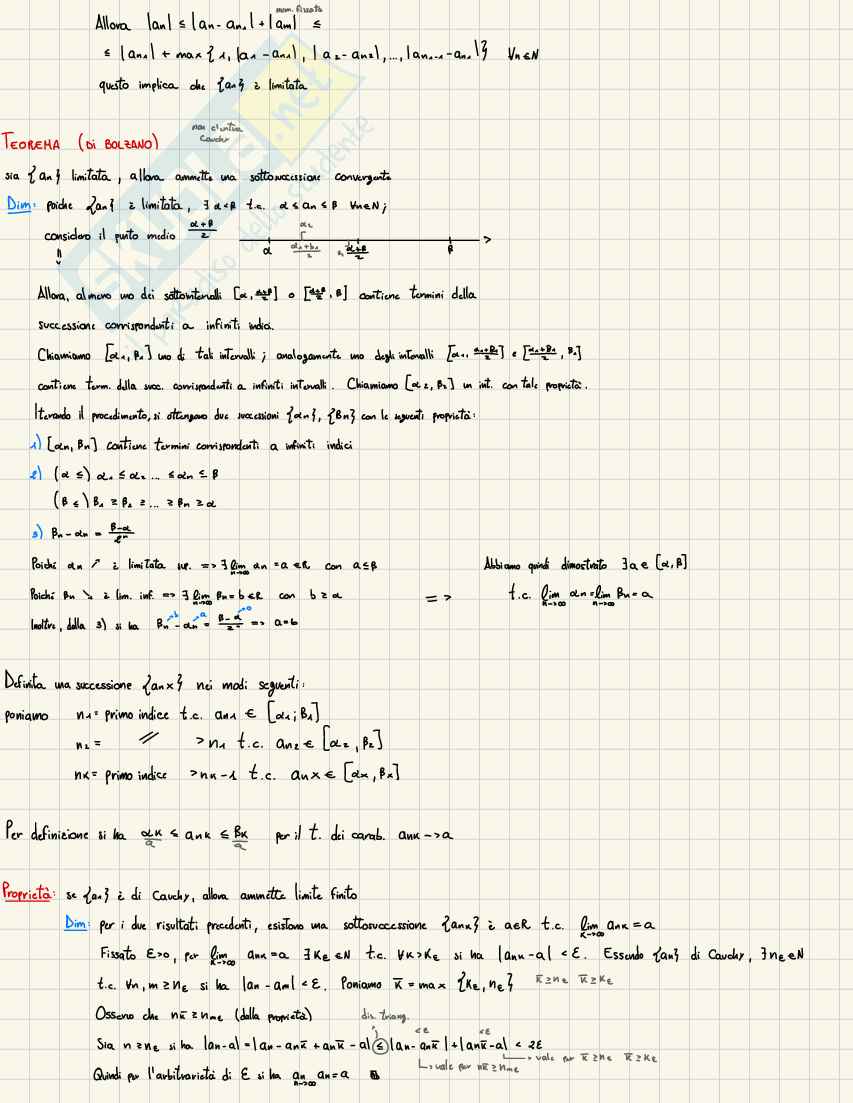 num. fissato
Allora |an| ≤ |an - an₁| + |am| ≤
≤ |an₁| + max {1, |a₁ - an₁|, |a₂ - an₂|, ..., |an₁₋₁ - an₁|} ∀n∈N
questo implica che {an} è limitata
TEOREMA (DI BOLZANO)
non c'entra
Cauchy
sia {an} limitata, allora ammette una sottosuccessione convergente
Dim: poiché {an} è limitata, ∃ α<β t.c. α ≤ an ≤ β ∀n∈N;
considero il punto medio (α+β)/2
α₂
α (α₁+b₁)/2 (α+β)/2 β
Allora, almeno uno dei sottointervalli [α, (α+β)/2] o [(α+β)/2, β] contiene termini della
successione corrispondenti a infiniti indici.
Chiamiamo [α₁, β₁] uno di tali intervalli; analogamente uno degli intervalli [α₁, (α₁+β₁)/2] e [(α₁+β₁)/2, β₁]
contiene term. della succ. corrispondenti a infiniti intervalli. Chiamiamo [α₂, β₂] un int. con tale proprietà.
Iterando il procedimento, si ottengono due successioni {αn}, {βn} con le seguenti proprietà:
1) [αn, βn] contiene termini corrispondenti a infiniti indici
2) (α ≤) α₁ ≤ α₂ ... ≤ αn ≤ β
(β ≤) β₁ ≥ β₂ ≥ ... ≥ βn ≥ α
3) βn - αn = (β-α)/2ⁿ
Poiché αn ↗ è limitata sup. => ∃ lim n->∞ αn = a ∈R con a ≤ β
Poiché βn ↘ è lim. inf. => ∃ lim n->∞ βn = b ∈R con b ≥ α
Inoltre, dalla 3) si ha βn - αn = (β-α)/2ⁿ => a=b
b a 0
=>
Abbiamo quindi dimostrato ∃ a ∈ [α, β]
t.c. lim n->∞ αn = lim n->∞ βn = a
Definita una successione {anx} nei modi seguenti:
poniamo n₁ = primo indice t.c. an₁ ∈ [α₁; β₁]
n₂ = // > n₁ t.c. an₂ ∈ [α₂, β₂]
nκ = primo indice > nκ-1 t.c. anx ∈ [αx, βx]
Per definizione si ha ακ ≤ anκ ≤ βκ per il t. dei carab. anκ -> a
a a
Proprietà: se {an} è di Cauchy, allora ammette limite finito
Dim: per i due risultati precedenti, esistono una sottosuccessione {anκ} è a∈R t.c. lim κ->∞ anκ = a
Fissato ε>0, per lim κ->∞ anκ = a ∃ κε ∈N t.c. ∀κ>κε si ha |anκ - a| < ε. Essendo {an} di Cauchy, ∃ nε ∈N
t.c. ∀n, m ≥ nε si ha |an - am| < ε. Poniamo κ̅ = max {κε, nε} κ̅ ≥ nε κ̅ ≥ κε
Osservo che nκ̅ ≥ nmε (dalla proprietà)
dis. triang.
<ε <ε
Sia n ≥ nε si ha |an-a| = |an - anκ̅ + anκ̅ - a| ≤ |an - anκ̅| + |anκ̅ - a| < 2ε
vale per κ̅ ≥ nε κ̅ ≥ κε
vale per nκ̅ ≥ nmε
Quindi per l'arbitrarietà di ε si ha an n->∞ an = a
SKUOLA.net
il paradiso dello studente